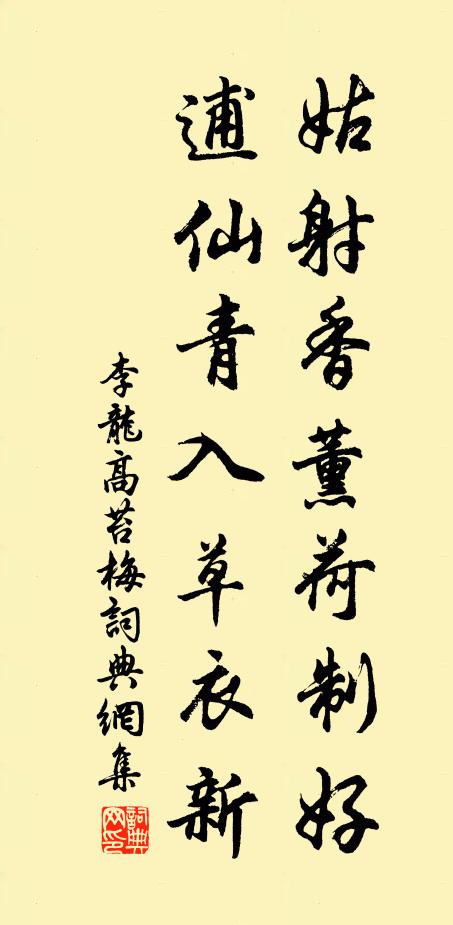 姑射香薰荷制好
逋仙青入草衣新
李龍高苔梅詞典網集
詞典网印